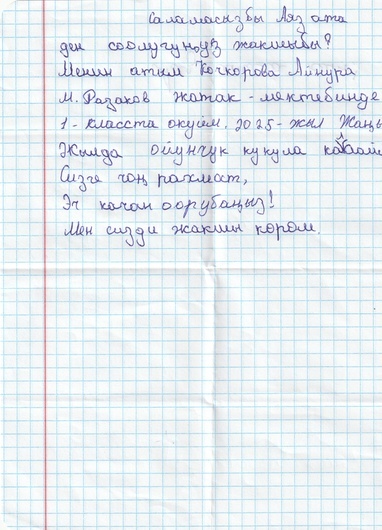 Саламатсызбы Аяз ата
ден соолугунуз жакшыбы?
Менин атым Кочкорова Айнура
М. Разаков жатак - мектебинде
1 - класста окуйм. 2025 - жыл Жаңы
Жылда оюнчук кукула
Сизге чоң рахмат,
Эч качан оорубаңыз!
Мен сизди жакшы көрөм.